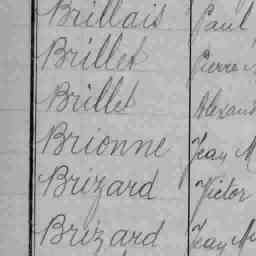 Brillais Paul
Brillet Pierre
Brillet Alexand
Brionne Jean M
Brizard Victor
Brizard Jean M